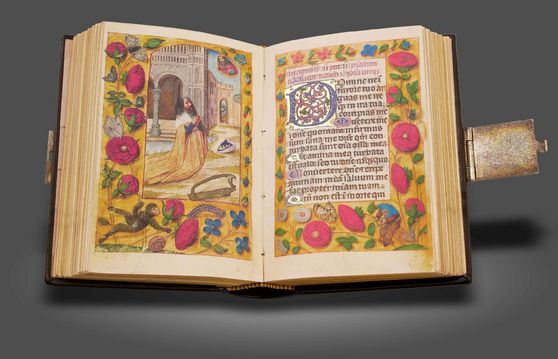 Domine ne in
furore tuo ar
guas me ne
qz in ira tua
corripias me
Miserere mei
dne quoniam infirmus
sum sana me dne qm con
turbata sunt ossa mea
Et anima mea turbata
est valde sed tu dne usquequo
Convertere dne et eripe
animam meam salvum me
fac propter miam tuam
Qm non est in morte qui